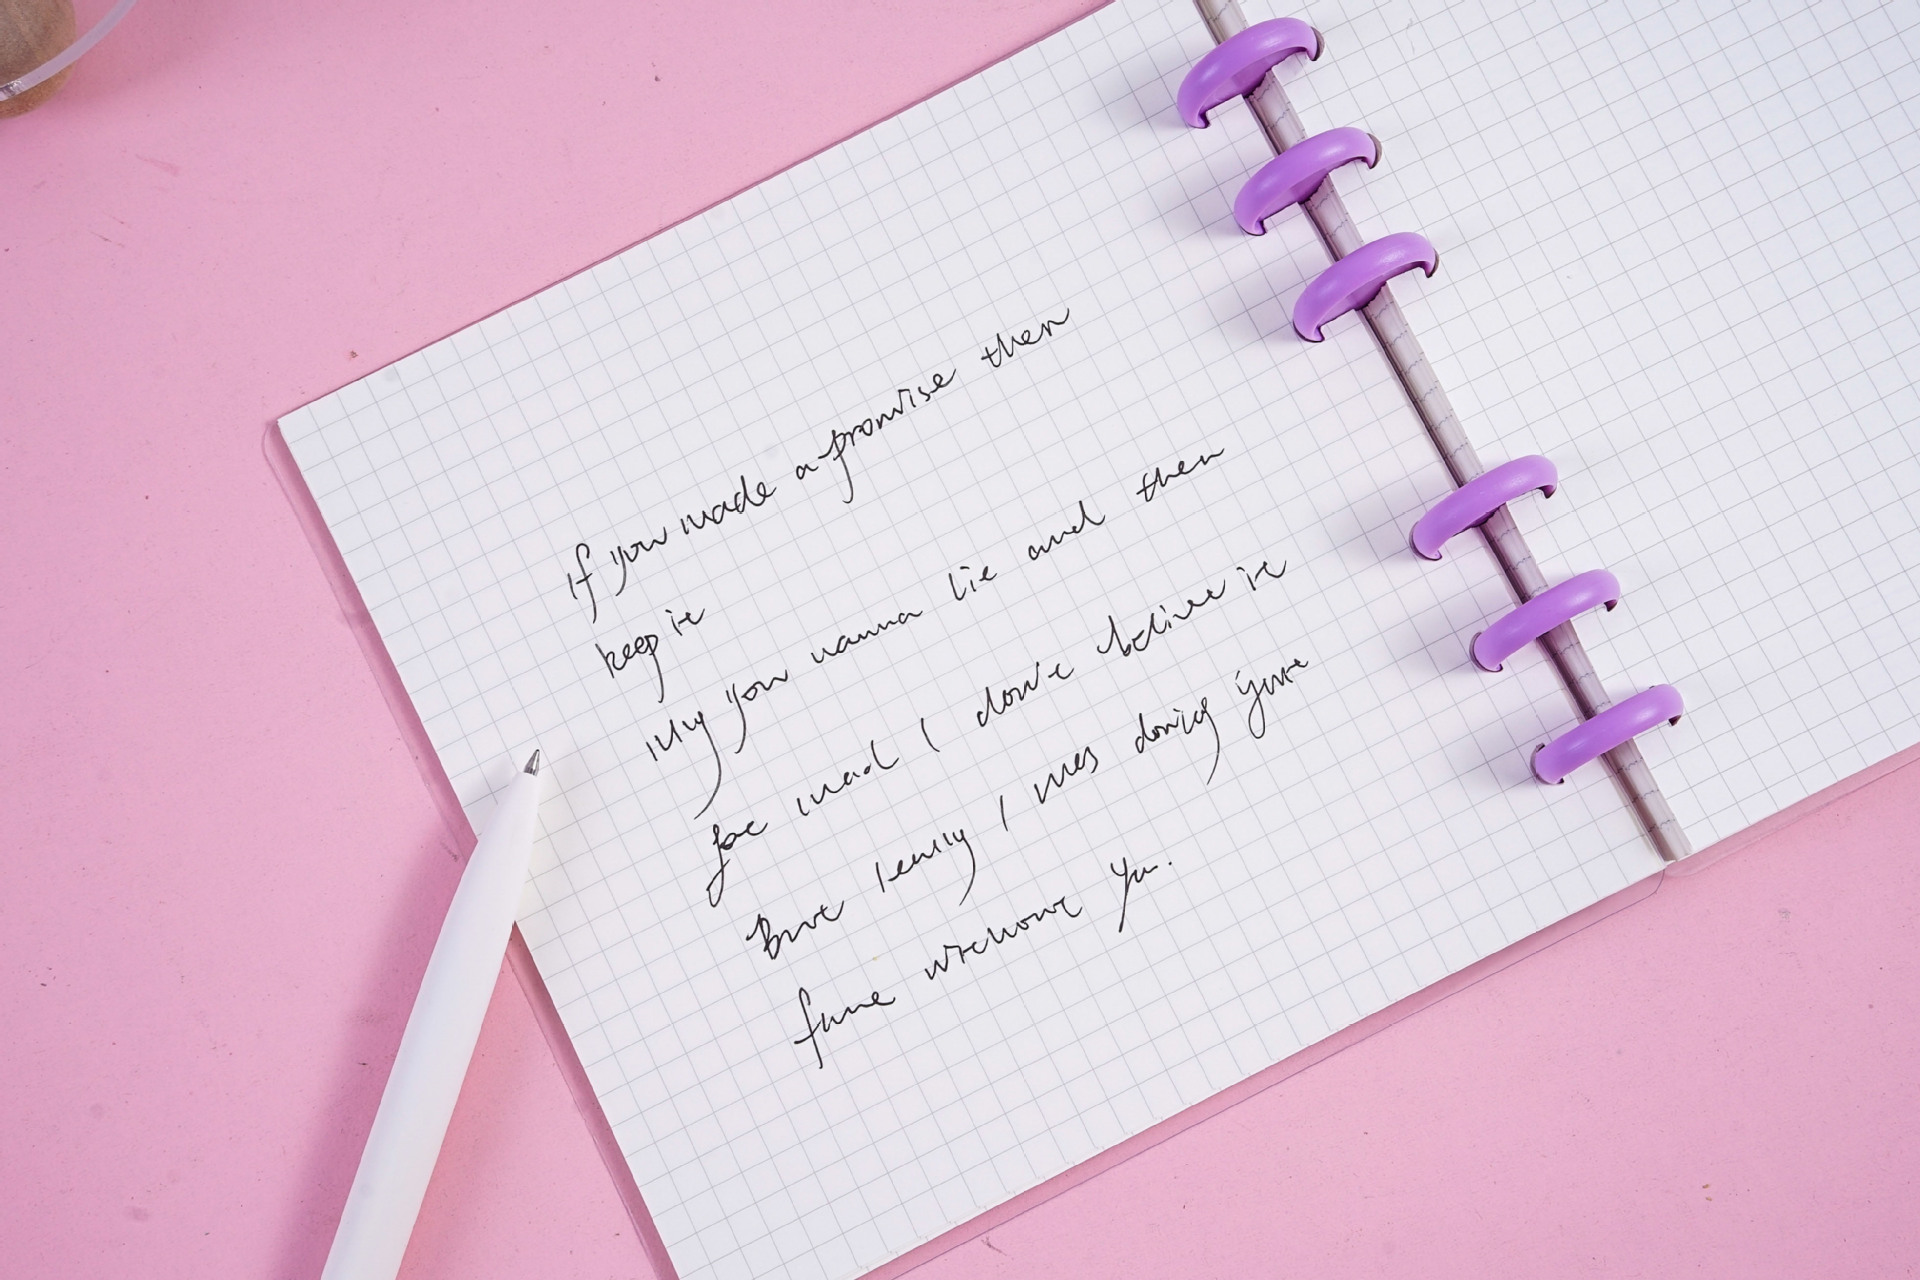 If you made a promise then
keep it
Why you wanna lie and then
get mad I don't believe it
But really I was doing just
fine without you.